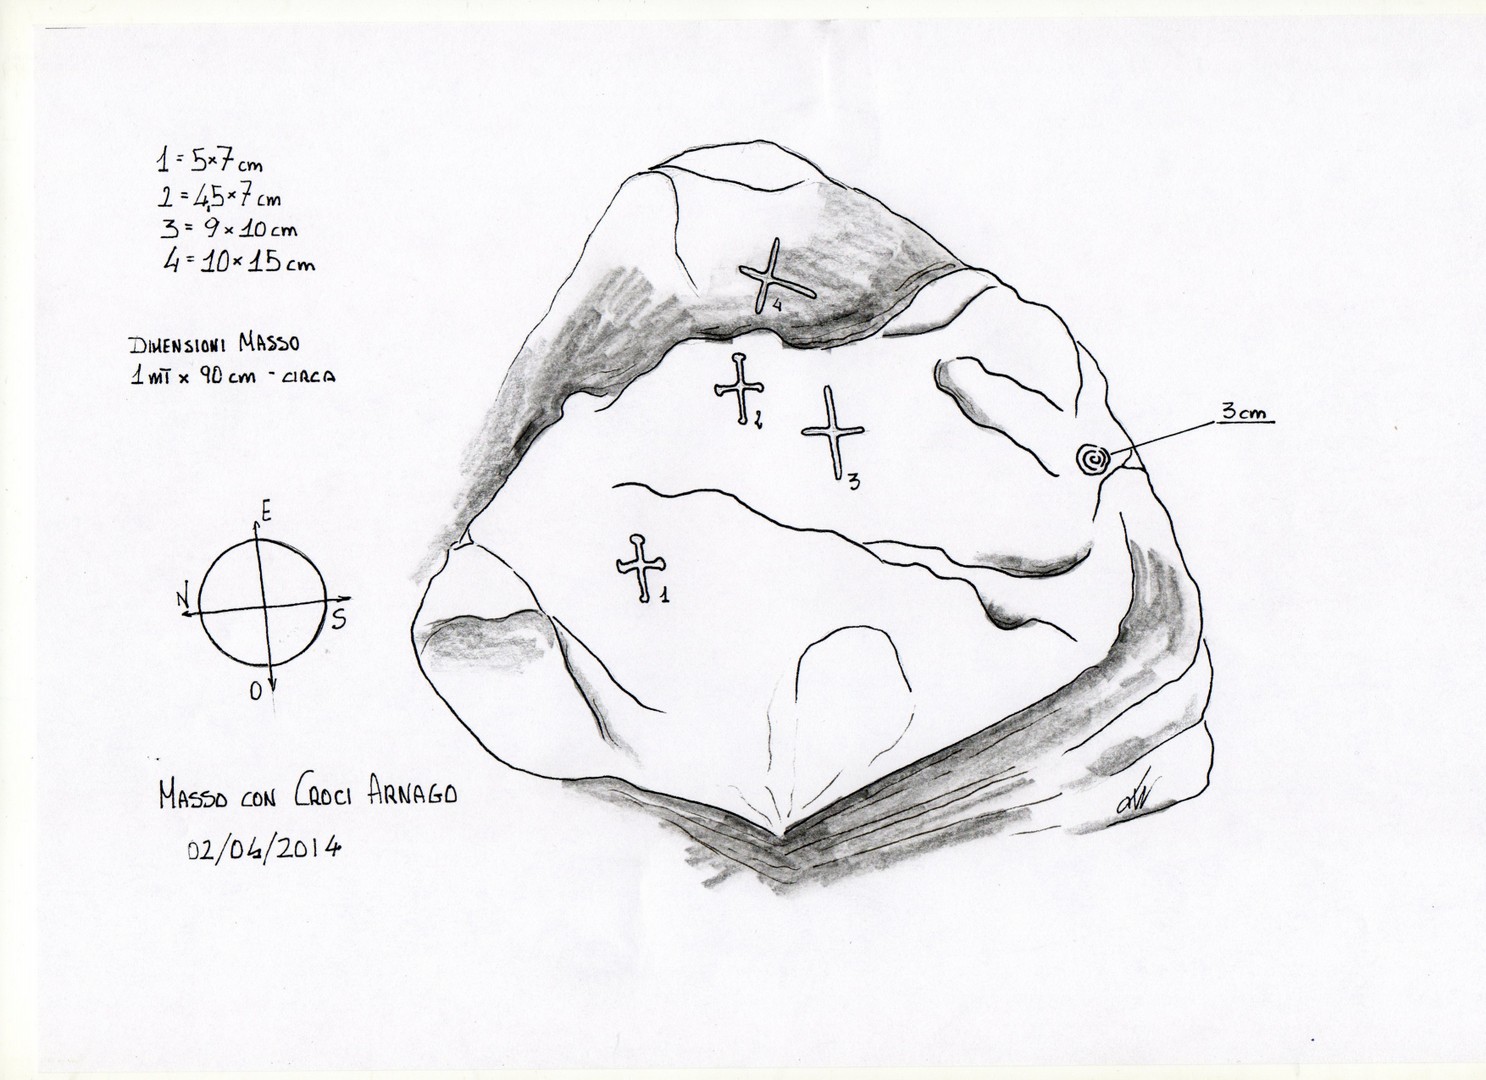 1 = 5×7 cm
2 = 4,5×7 cm
3 = 9×10 cm
4 = 10×15 cm
DIMENSIONI MASSO
1 mT × 90 cm - CIRCA
E
N
S
O
MASSO CON CROCI ARNAGO
02/04/2014
4
2
3
1
3 cm